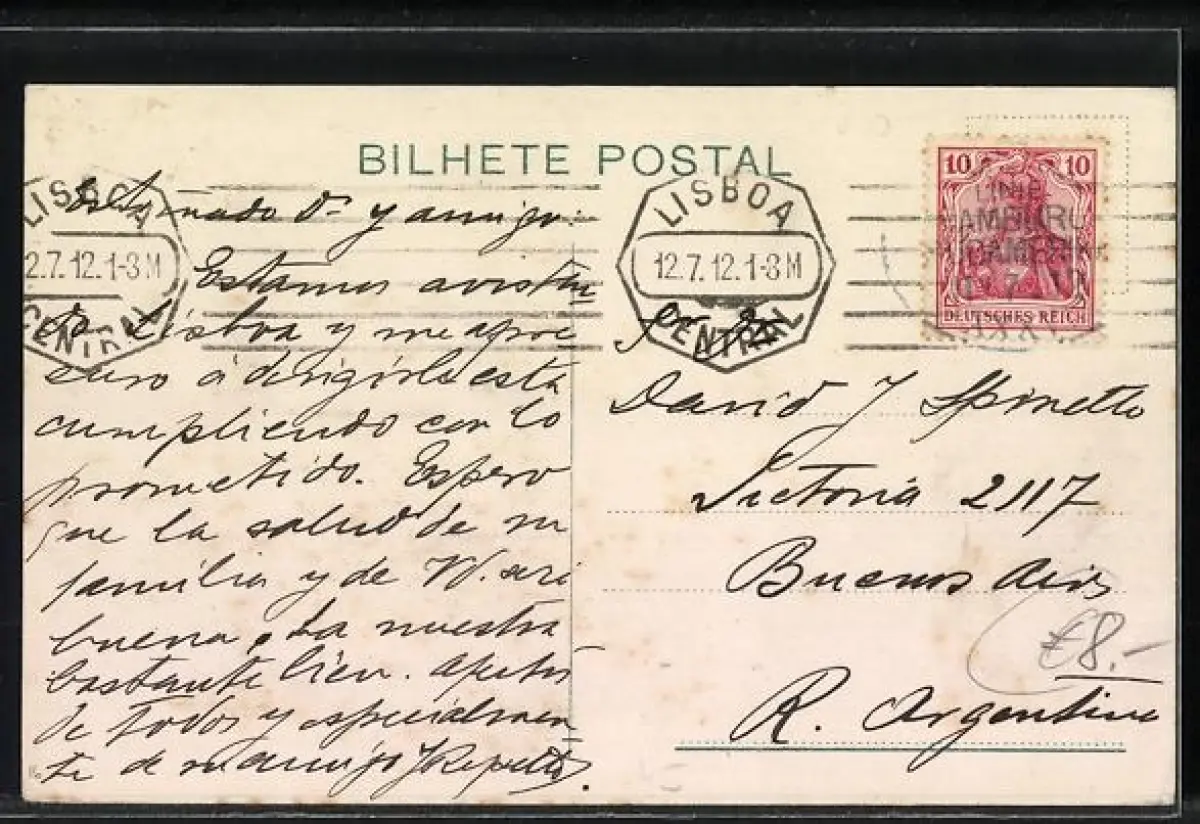 BILHETE POSTAL
LISBOA
2.7.12.1-8M
CENTRAL
LISBOA
12.7.12.1-8M
CENTRAL
10 10
DEUTSCHES REICH
LINIE
HAMBURG
Estimado Dr. y amigo:
Estamos avistan
do Lisboa y me apre
suro á dirigirle esta
cumpliendo con lo
prometido. Espero
que la salud de su
familia y de Vd. será
buena. La nuestra
bastante bien. Afectos
de todos y especialmen
te de su amigo J Repetto
Sr Dr
David J Spinetto
Victoria 2117
Buenos Aires
R. Argentina
€8.-